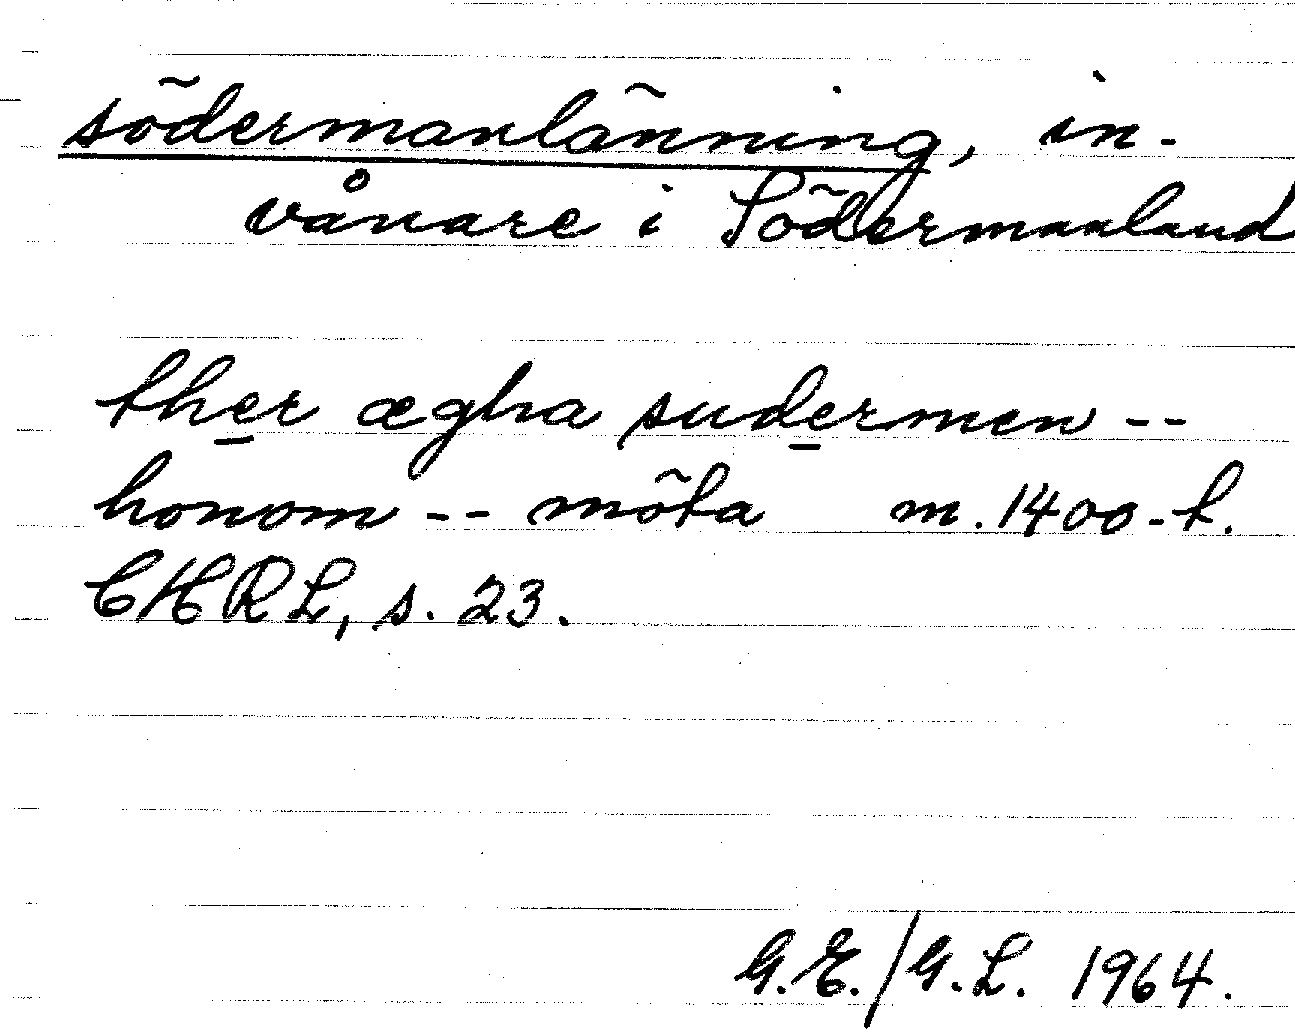 södermanlänning, in-
vånare i Södermanland
ther ægha sudermen --
honom -- möta m. 1400-t.
CHRL, s. 23.
G.E./G.L. 1964.